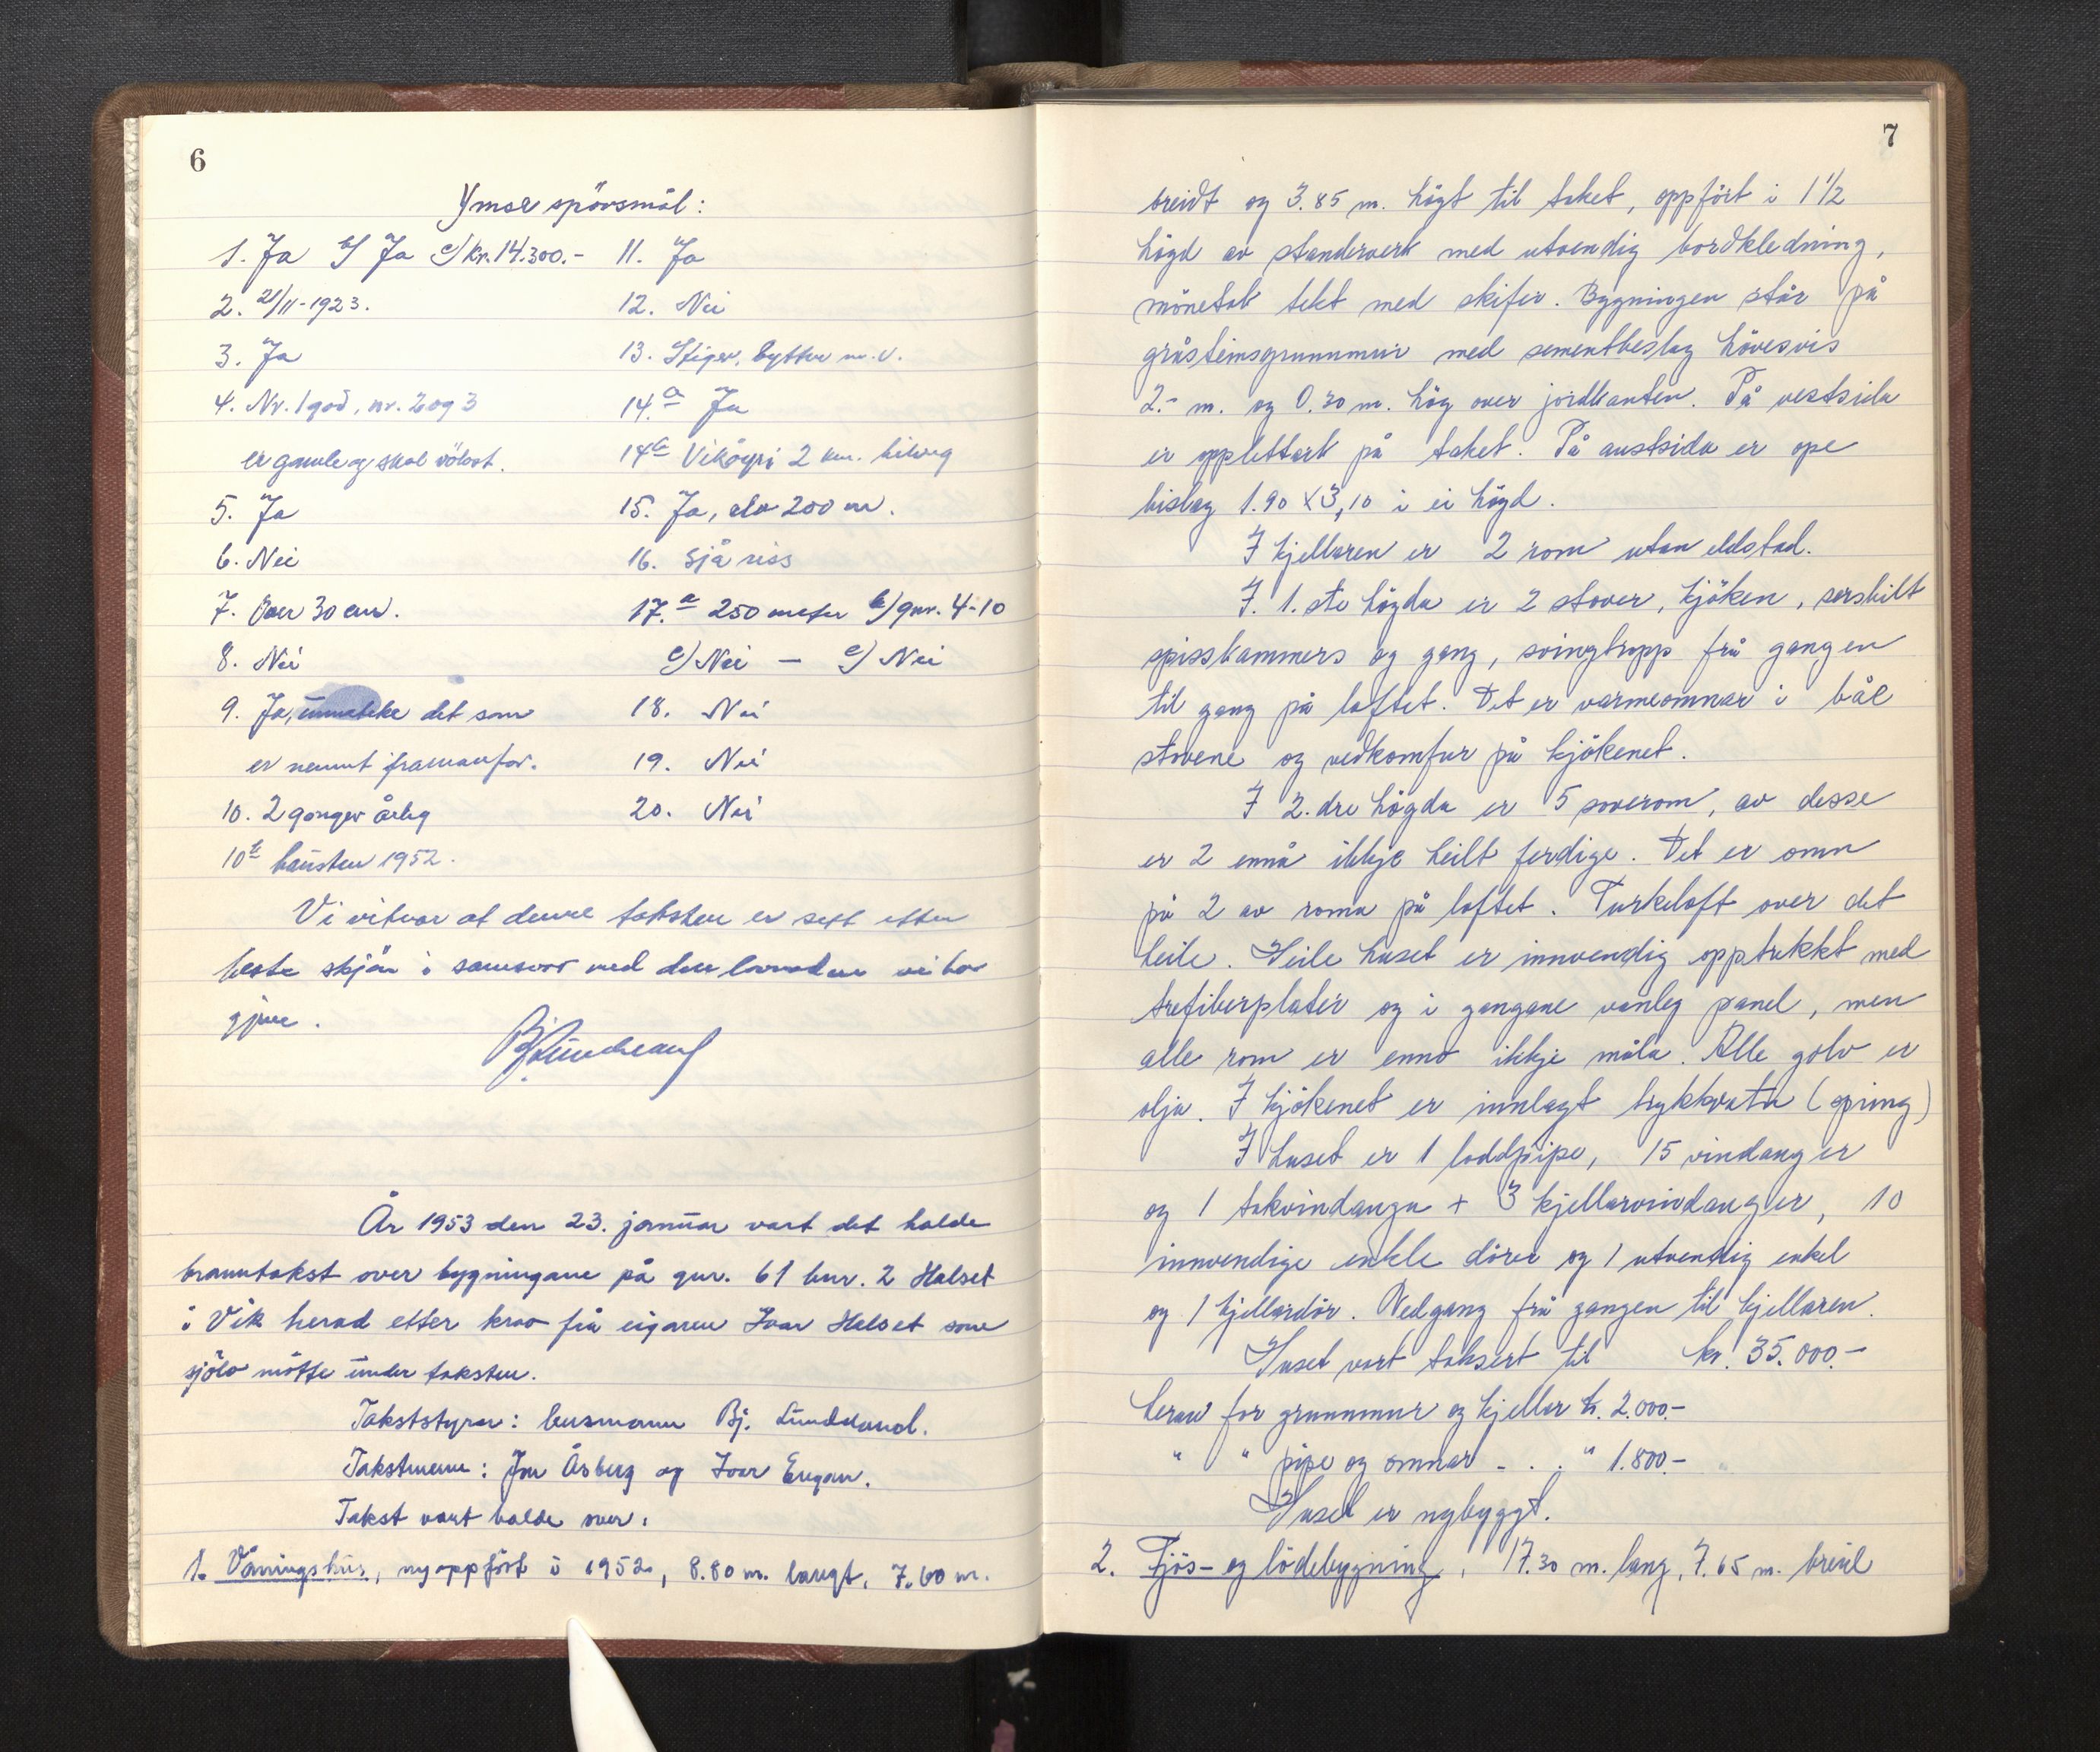 6
Ymse spörsmål:
1. Ja b/ Ja c/ kr. 14.300.-
2. 21/11-1923.
3. Ja
4. Nr. 1 god, nr. 2 og 3
er gamle og skal völast.
5. Ja
6. Nei
7. Over 30 cm.
8. Nei
9. Ja, det som
er nemnt framanfor.
10. 2 gonger årleg
10b hausten 1952.
11. Ja
12. Nei
13. Stiger, bytter m.v.
14.a Ja
14c Viköyri 2 km. bilveg
15. Ja, elv 200 m.
16. Sjå riss
17.a 250 meter b/ gnr. 4-10
c/ Nei — c/ Nei
18. Nei
19. Nei
20. Nei
Vi vitnar at denne taksten er sett etter
beste skjön i samsvar med den lovnaden vi har
gjeve.
Bj. Lundsand
År 1953 den 23. januar vart det halde
branntakst over bygningane på gnr. 61 bnr. 2 Halset
i Vik herad etter krav frå eigaren Ivar Halset som
sjölv mötte under taksten.
Takststyrar: lensmann Bj. Lundsand.
Takstmenn: Jon Åsberg og Ivar Engan.
Takst vart halde over:
1. Våningshus, nyoppfört i 1952, 8.80 m. langt, 7.60 m.
7
breidt og 3.85 m. högt til taket, oppfört i 1 1/2
högd av standerverk med utvendig bordkledning,
mönetak tekt med skifer. Bygningen står på
gråsteinsgrunnmur med sementbeslag hövesvis
2.- m. og 0.30 m. hög over jordkanten. På vestsida
er opplettark på taket. På austsida er ope
bislag 1.90 x 3,10 i ei högd.
I kjellaren er 2 rom utan eldstad.
I. 1. ste högda er 2 stover, kjöken, serskilt
spisskammers og gang, svingtropp frå gangen
til gang på loftet. Det er varmeomnar i båe
stovene og vedkomfur på kjökenet.
I 2. dre högda er 5 soverom, av desse
er 2 ennå ikkje heilt ferdige. Det er omn
på 2 av roma på loftet. Turkeloft over det
heile. Heile huset er innvendig opptrekkt med
trefiberplater og i gangane vanleg panel, men
alle rom er enno ikkje måla. Alle golv er
olja. I kjökenet er innlagt trykkvatn (spring)
I huset er 1 loddpipe, 15 vindauger
og 1 takvindauga + 3 kjellarvindauger, 10
innvendige enkle dörer og 1 utvendig enkel
og 1 kjellardör. Nedgang frå gangen til kjellaren.
Huset vart taksert til kr. 35.000.-
herav for grunnmur og kjellar kr. 2.000.-
" " pipe og omnar - . . " 1.800.-
Huset er nybyggt.
2. Fjös- og lödebygning, 17.30 m. lang, 7.65 m. breid